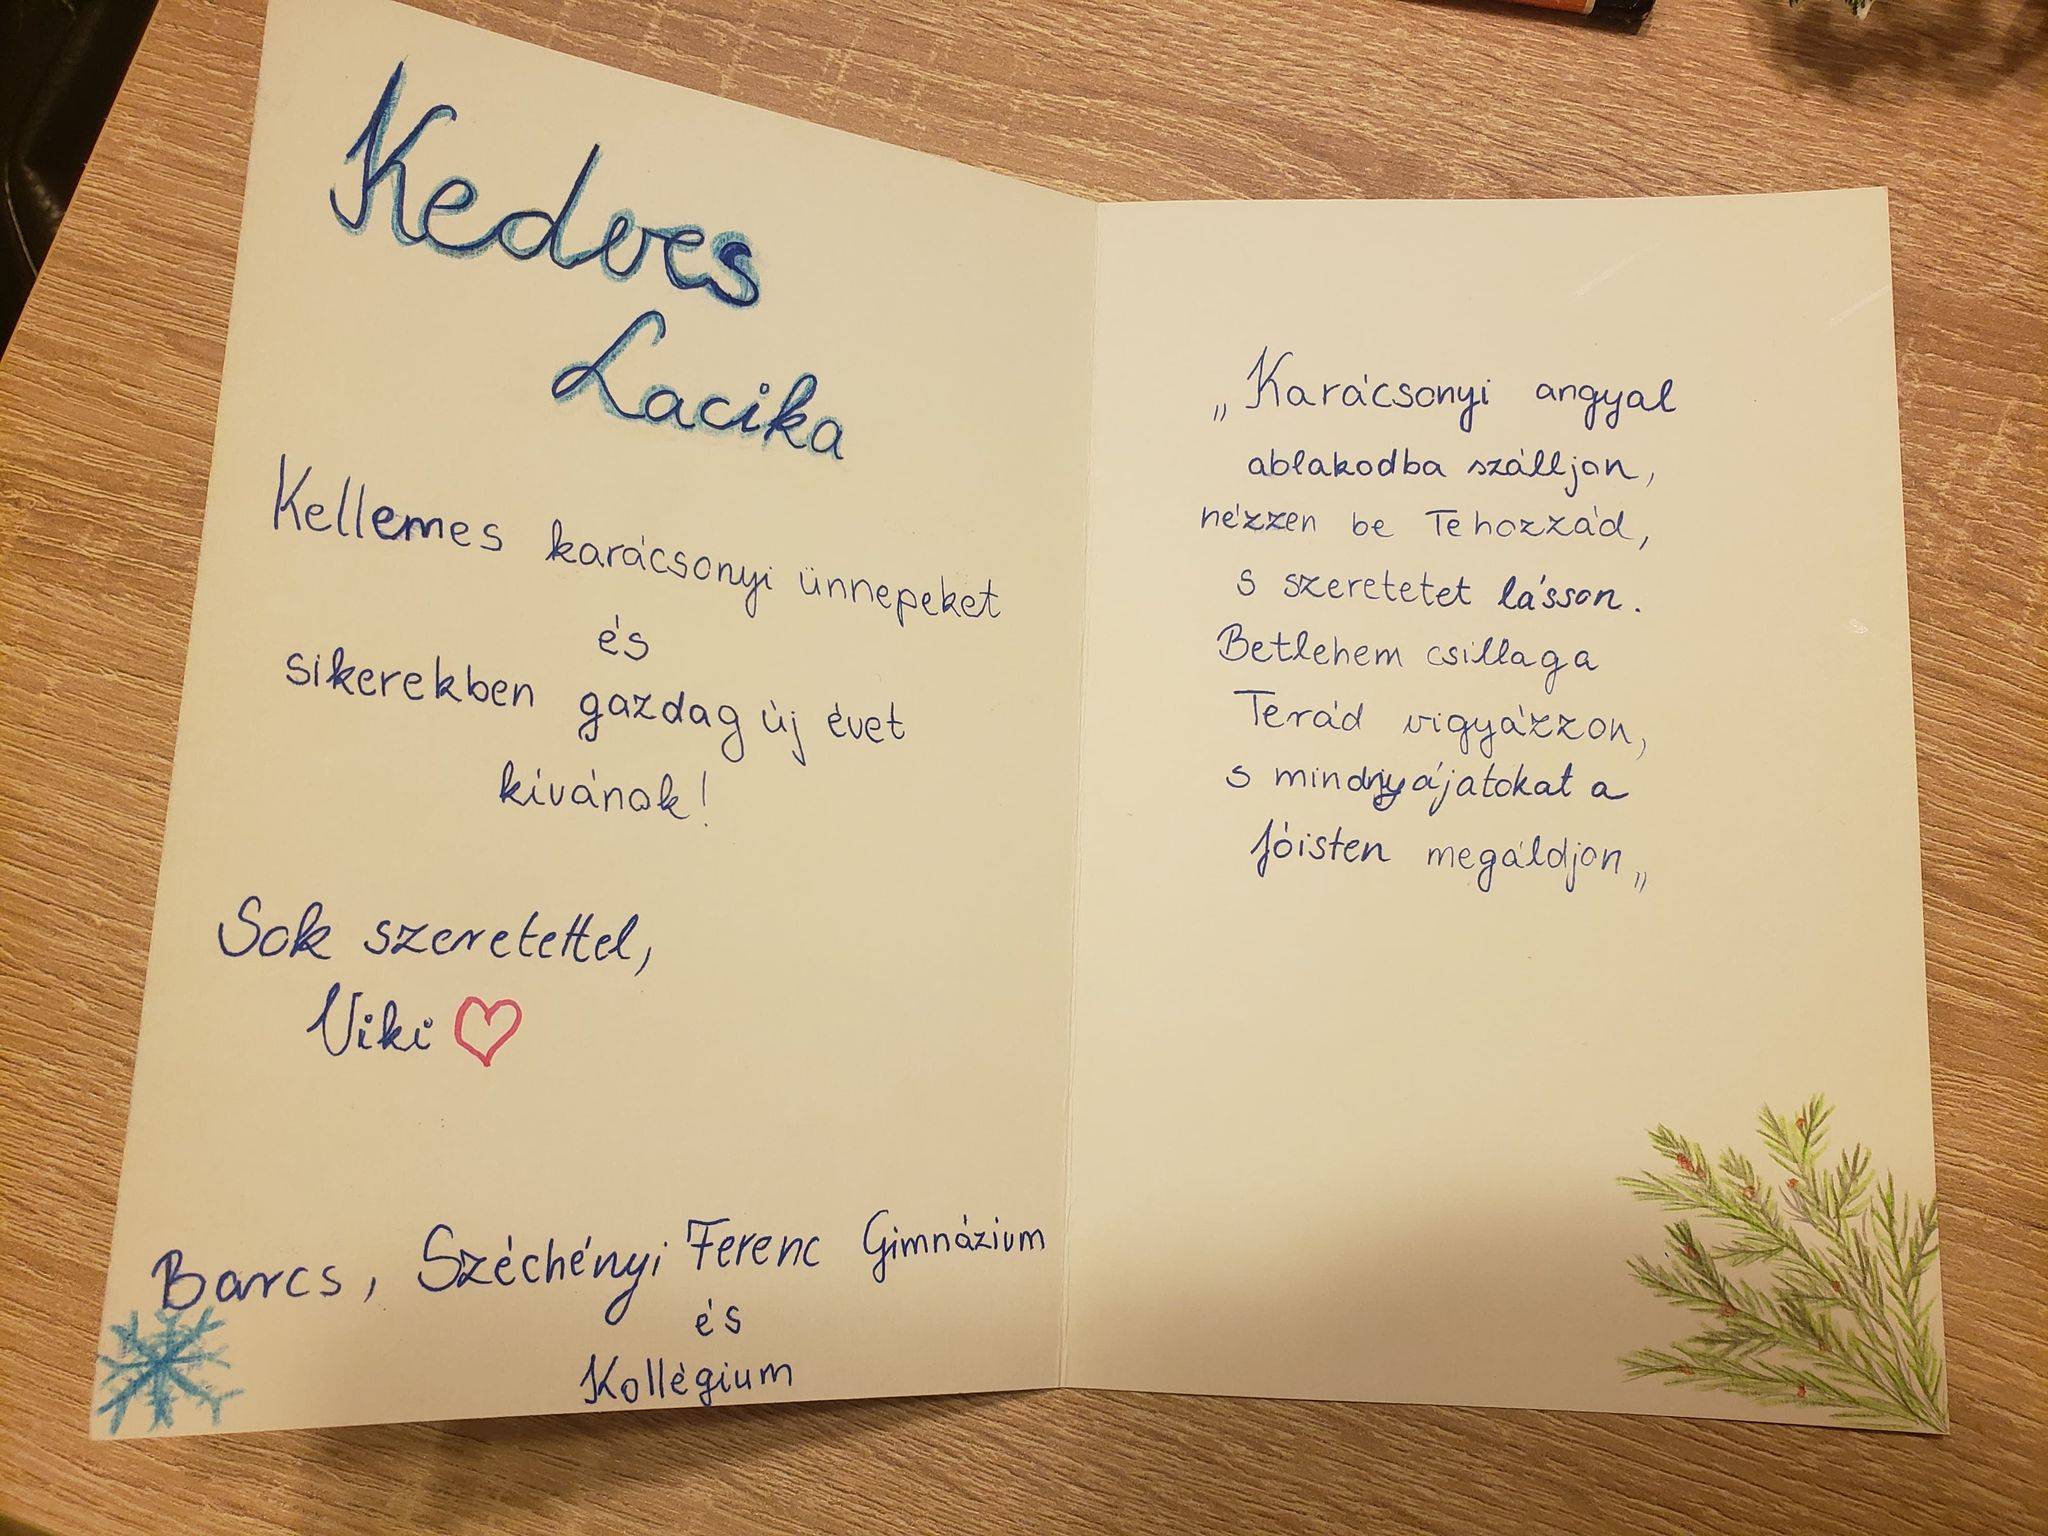 Kedves
Lacika
Kellemes karácsonyi ünnepeket
és
sikerekben gazdag új évet
kívánok!
Sok szeretettel,
Viki
Barcs, Széchényi Ferenc Gimnázium
és
Kollégium
„Karácsonyi angyal
ablakodba szálljon,
nézzen be Tehozzád,
s szeretetet lásson.
Betlehem csillaga
Terád vigyázzon,
s mindnyájatokat a
Jóisten megáldjon„